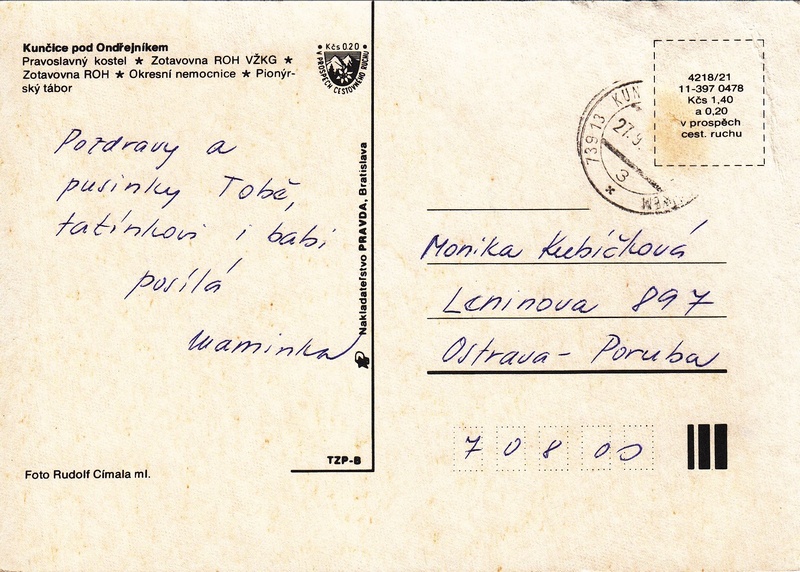 Kunčice pod Ondřejníkem
Pravoslavný kostel ★ Zotavovna ROH VŽKG ★
Zotavovna ROH ★ Okresní nemocnice ★ Pionýr-
ský tábor
Kčs 0.20
V PROSPĚCH CESTOVNÍHO RUCHU
Pozdravy a
pusinky Tobě,
tatínkovi i babi
posílá
maminka
Nakladateľstvo PRAVDA, Bratislava
TZP-B
Foto Rudolf Címala ml.
4218/21
11-397 0478
Kčs 1,40
a 0,20
v prospěch
cest. ruchu
739 13 KUN
27.9
3
Monika Kubíčková
Leninova 897
Ostrava - Poruba
70800